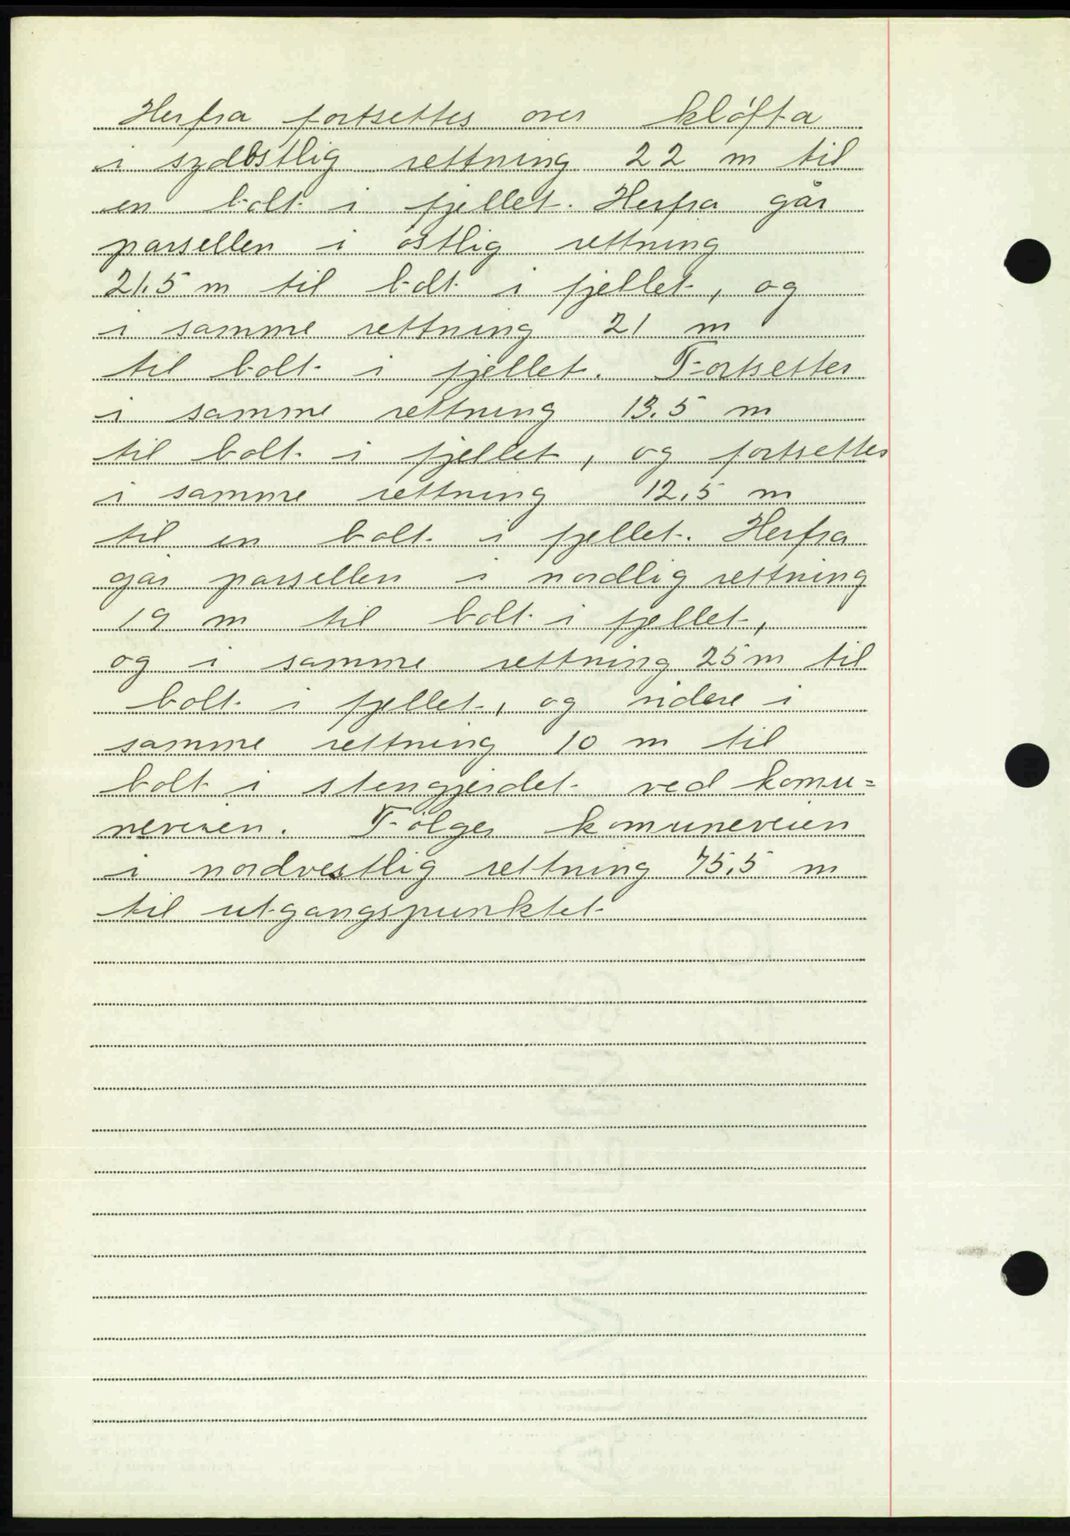 Herfra fortsettes over klöfta
i sydöstlig rettning 22 m til
en bolt i fjellet. Herfra går
parsellen i östlig rettning
21.5 m til bolt i fjellet, og
i samme rettning 21 m
til bolt i fjellet. Fortsetter
i samme rettning 13.5 m
til bolt i fjellet, og fortsettes
i samme rettning 12,5 m
til en bolt i fjellet. Herfra
går parsellen i nordlig rettning
19 m til bolt i fjellet,
og i samme rettning 25 m til
bolt i fjellet, og videre i
samme rettning 10 m til
bolt i stengjerdet ved komu=
neveien. Fölger komuneveien
i nordvestlig rettning 75,5 m
til utgangspunktet